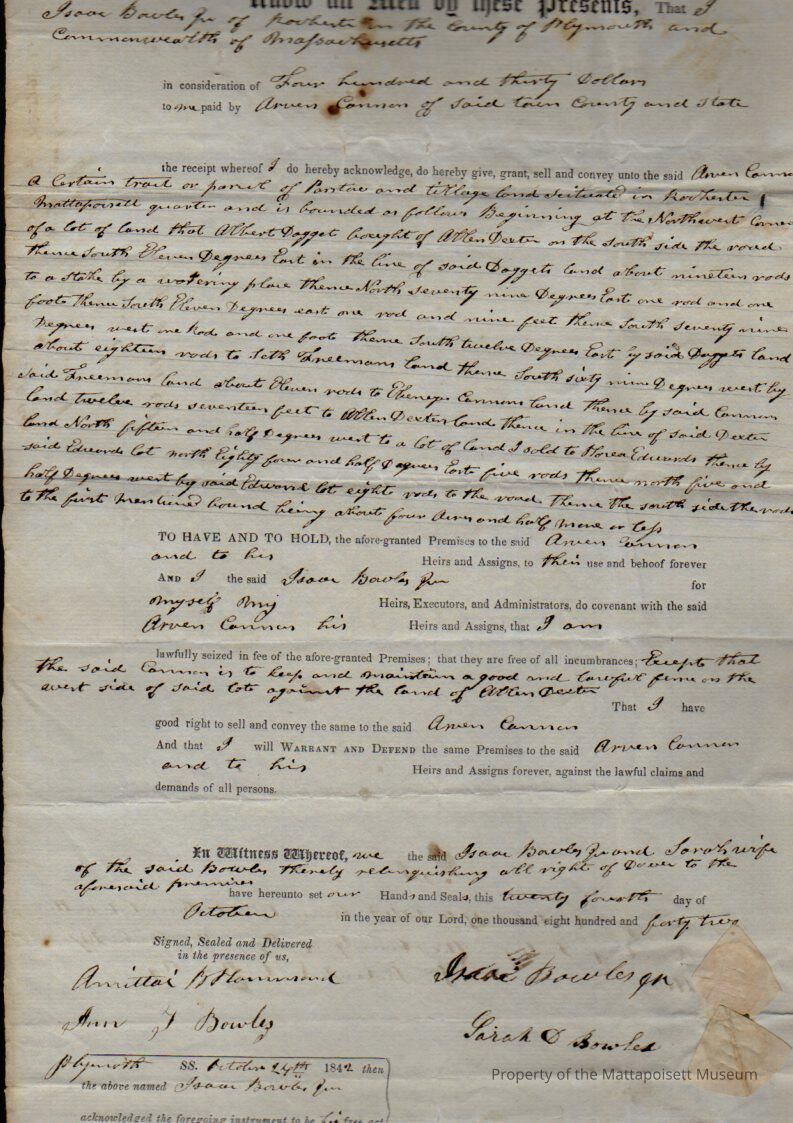 Know all Men by these Presents, That I
Isaac Bowles Jur of Rochester in the County of Plymouth and
Commonwealth of Massachusetts
in consideration of Four hundred and thirty Dollars
to me paid by Arven Cannon of said town County and State
the receipt whereof I do hereby acknowledge, do hereby give, grant, sell and convey unto the said Arven Cannon
A Certain tract or parcel of Pastue and tillage land scituated in Rochester
Mattapoisett quarter and is bounded as follows Beginning at the Northwest Corner
of a lot of land that Albert Dagget bought of Allen Dexter on the south side the road
thence South Eleven Degrees East in the line of said Daggets land about nineteen rods
to a stake by a watering place thence North seventy nine Degrees East one rod and one
foote thence South Eleven Degrees east one rod and nine feet thence South seventy nine
Degrees west one Rod and one foote thence South twelve Degrees East by said Daggets land
about eighteen rods to Seth Freemans land thence South sixty nine Degrees west by
said Freemans land about Eleven rods to Ebenezer Cannons land thence by said Cannons
land twelve rods seventeen feet to Allen Dexter land thence in the line of said Dexter
land North fifteen and half Degrees west to a lot of land I sold to Hosea Edwards thence by
said Edwards lot north Eighty four and half Degrees East five rods thence north five and
half Degrees west by said Edwards lot eight rods to the road thence the south side the road
to the first mentioned bound being about four Acres and half more or less
TO HAVE AND TO HOLD, the afore-granted Premises to the said Arven Cannon
and to his Heirs and Assigns, to their use and behoof forever
AND I the said Isaac Bowles Jur for
myself my Heirs, Executors, and Administrators, do covenant with the said
Arven Cannon his Heirs and Assigns, that I am
lawfully seized in fee of the afore-granted Premises; that they are free of all incumbrances; Excepte that
the said Cannon is to keep and maintain a good and lawful fence on the
west side of said lote against the land of Allen Dexter
That I have
good right to sell and convey the same to the said Arven Cannon
And that I will WARRANT AND DEFEND the same Premises to the said Arven Cannon
and to his Heirs and Assigns forever, against the lawful claims and
demands of all persons.
In Witness Whereof, we the said Isaac Bowles Jur and Sarah wife
of the said Bowles thereby relenquishing all right of Dower to the
aforesaid premises
have hereunto set our Hands and Seals, this twenty fourth day of
October in the year of our Lord, one thousand eight hundred and forty two
Signed, Sealed and Delivered
in the presence of us,
Amittai B Hammond
Isaac Bowles Jr
Ann J Bowles
Sarah D Bowles
Plymouth SS. October 24th 1842 then
the above named Isaac Bowles Jur
acknowledged the foregoing instrument to be his free act
Property of the Mattapoisett Museum